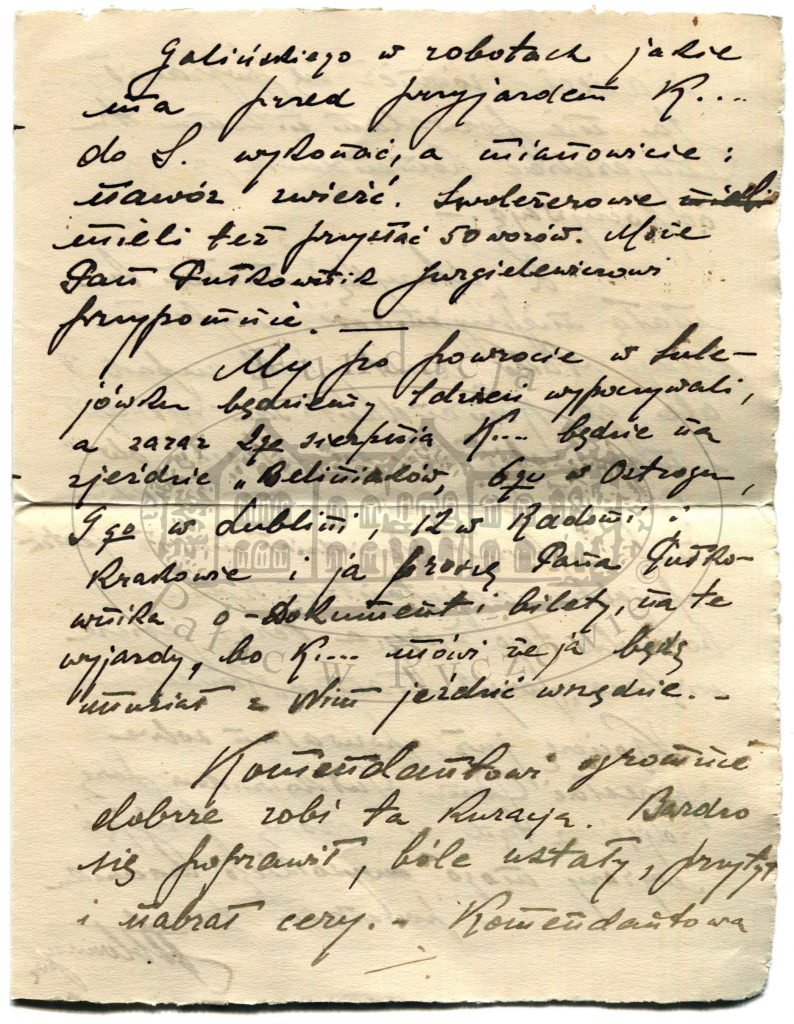 Galińskiego w robotach jakie
ma przed przyjazdem K....
do S. wykonać, a mianowicie:
nawóz zwieźć. Szwoleżerowie mieli
mieli też przysłać 50 wozów. Może
Pan Pułkownik Jurgielewiczowi
przypomnie. —
My po powrocie w Sule-
jówku będziemy 1 dzień wypoczywali,
a zaraz 2go sierpnia K... będzie na
zjeździe „Beliniaków, 6go w Ostrogu,
9go w Lublini, 12 w Radomi i
Krakowie i ja proszę Pana Pułko-
wnika o - Dokument i bilety, na te
wyjazdy, bo K.... mówi że ja będę
musiał z Nim jeździć wszędzie. -
Komendantowi ogromnie
dobrze robi ta kuracja. Bardzo
się poprawił, bóle ustały, przytył
i nabrał cery. - Komendantowa
Fundacja
Pałac w Kruszowie ©